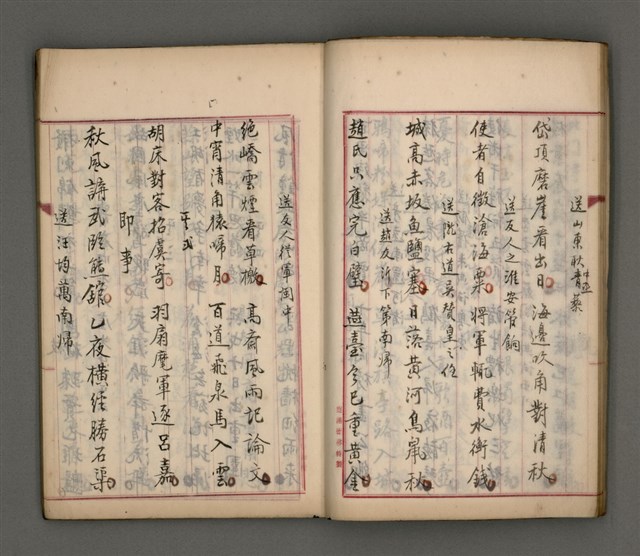 送山東耿青藜
岱頂磨崖看出日 海邊吹角對清秋
送友人之淮安管餉
使者自徵滄海粟 將軍輒費水衡錢
送隴右道吳贊皇之任
城高赤坂魚鹽塞 日落黃河鳥鼠秋
送趙友沂下第南歸
趙氏只應完白璧 燕臺今已重黃金
送友人從軍閩中
絕嶠雲煙看草檄 高齋風雨記論文
中宵清角猿啼月 百道飛泉馬入雲
胡床對客招虞寄 羽扇麾軍逐呂嘉
即事
秋風講武臨熊館 乙夜橫經勝石渠
送汪均萬南歸